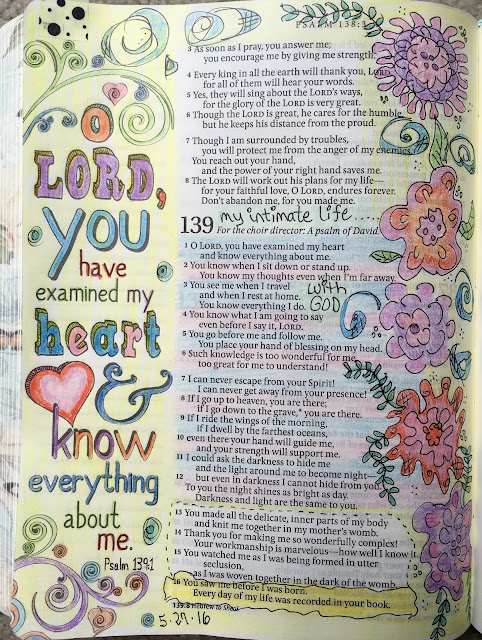 PSALM 138:3
3 As soon as I pray, you answer me;
you encourage me by giving me strength.
4 Every king in all the earth will thank you, LORD,
for all of them will hear your words.
5 Yes, they will sing about the LORD's ways,
for the glory of the LORD is very great.
6 Though the LORD is great, he cares for the humble,
but he keeps his distance from the proud.
7 Though I am surrounded by troubles,
you will protect me from the anger of my enemies.
You reach out your hand,
and the power of your right hand saves me.
8 The LORD will work out his plans for my life—
for your faithful love, O LORD, endures forever.
Don't abandon me, for you made me.
139 my intimate life.....
For the choir director: A psalm of David.
1 O LORD, you have examined my heart
and know everything about me.
2 You know when I sit down or stand up.
You know my thoughts even when I'm far away.
3 You see me when I travel
and when I rest at home.
You know everything I do.
with
GOD
4 You know what I am going to say
even before I say it, LORD.
5 You go before me and follow me.
You place your hand of blessing on my head.
6 Such knowledge is too wonderful for me,
too great for me to understand!
7 I can never escape from your Spirit!
I can never get away from your presence!
8 If I go up to heaven, you are there;
if I go down to the grave,* you are there.
9 If I ride the wings of the morning,
if I dwell by the farthest oceans,
10 even there your hand will guide me,
and your strength will support me.
11 I could ask the darkness to hide me
and the light around me to become night—
12 but even in darkness I cannot hide from you.
To you the night shines as bright as day.
Darkness and light are the same to you.
13 You made all the delicate, inner parts of my body
and knit me together in my mother's womb.
14 Thank you for making me so wonderfully complex!
Your workmanship is marvelous—how well I know it.
15 You watched me as I was being formed in utter
seclusion,
as I was woven together in the dark of the womb.
16 You saw me before I was born.
Every day of my life was recorded in your book.
139:8 Hebrew to Sheol.
5.29.16
O
LORD,
you
have
examined my
heart
&
know
everything
about
me.
Psalm 139:1